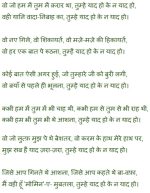 वो जो हम में तुम में क़रार था, तुम्हें याद हो के न याद हो,
वही यानि वादा-निबाह का, तुम्हें याद हो के न याद हो.
वो नए गिले, वो शिकायतें, वो मज़े-मज़े की हिकायतें,
वो हर एक बात पे रूठना, तुम्हें याद हो के न याद हो.
कोई बात ऐसी अगर हुई, जो तुम्हारे जी को बुरी लगी,
तो बयाँ से पहले ही भूलना, तुम्हें याद हो के न याद हो.
कभी हम में तुम में भी चाह थी, कभी हम से तुम से भी राह थी,
कभी हम भी तुम भी थे आशना, तुम्हें याद हो के न याद हो.
वो जो लुत्फ़ मुझ पे थे बेशतर, वो करम के हाथ मेरे हाथ पर,
मुझे सब हैं याद ज़रा-ज़रा, तुम्हें याद हो के न याद हो.
जिसे आप गिनते थे आशना, जिसे आप कहते थे बा-वफ़ा,
मैं वही हूँ 'मोमिन'-ए- मुबतला, तुम्हें याद हो के न याद हो.